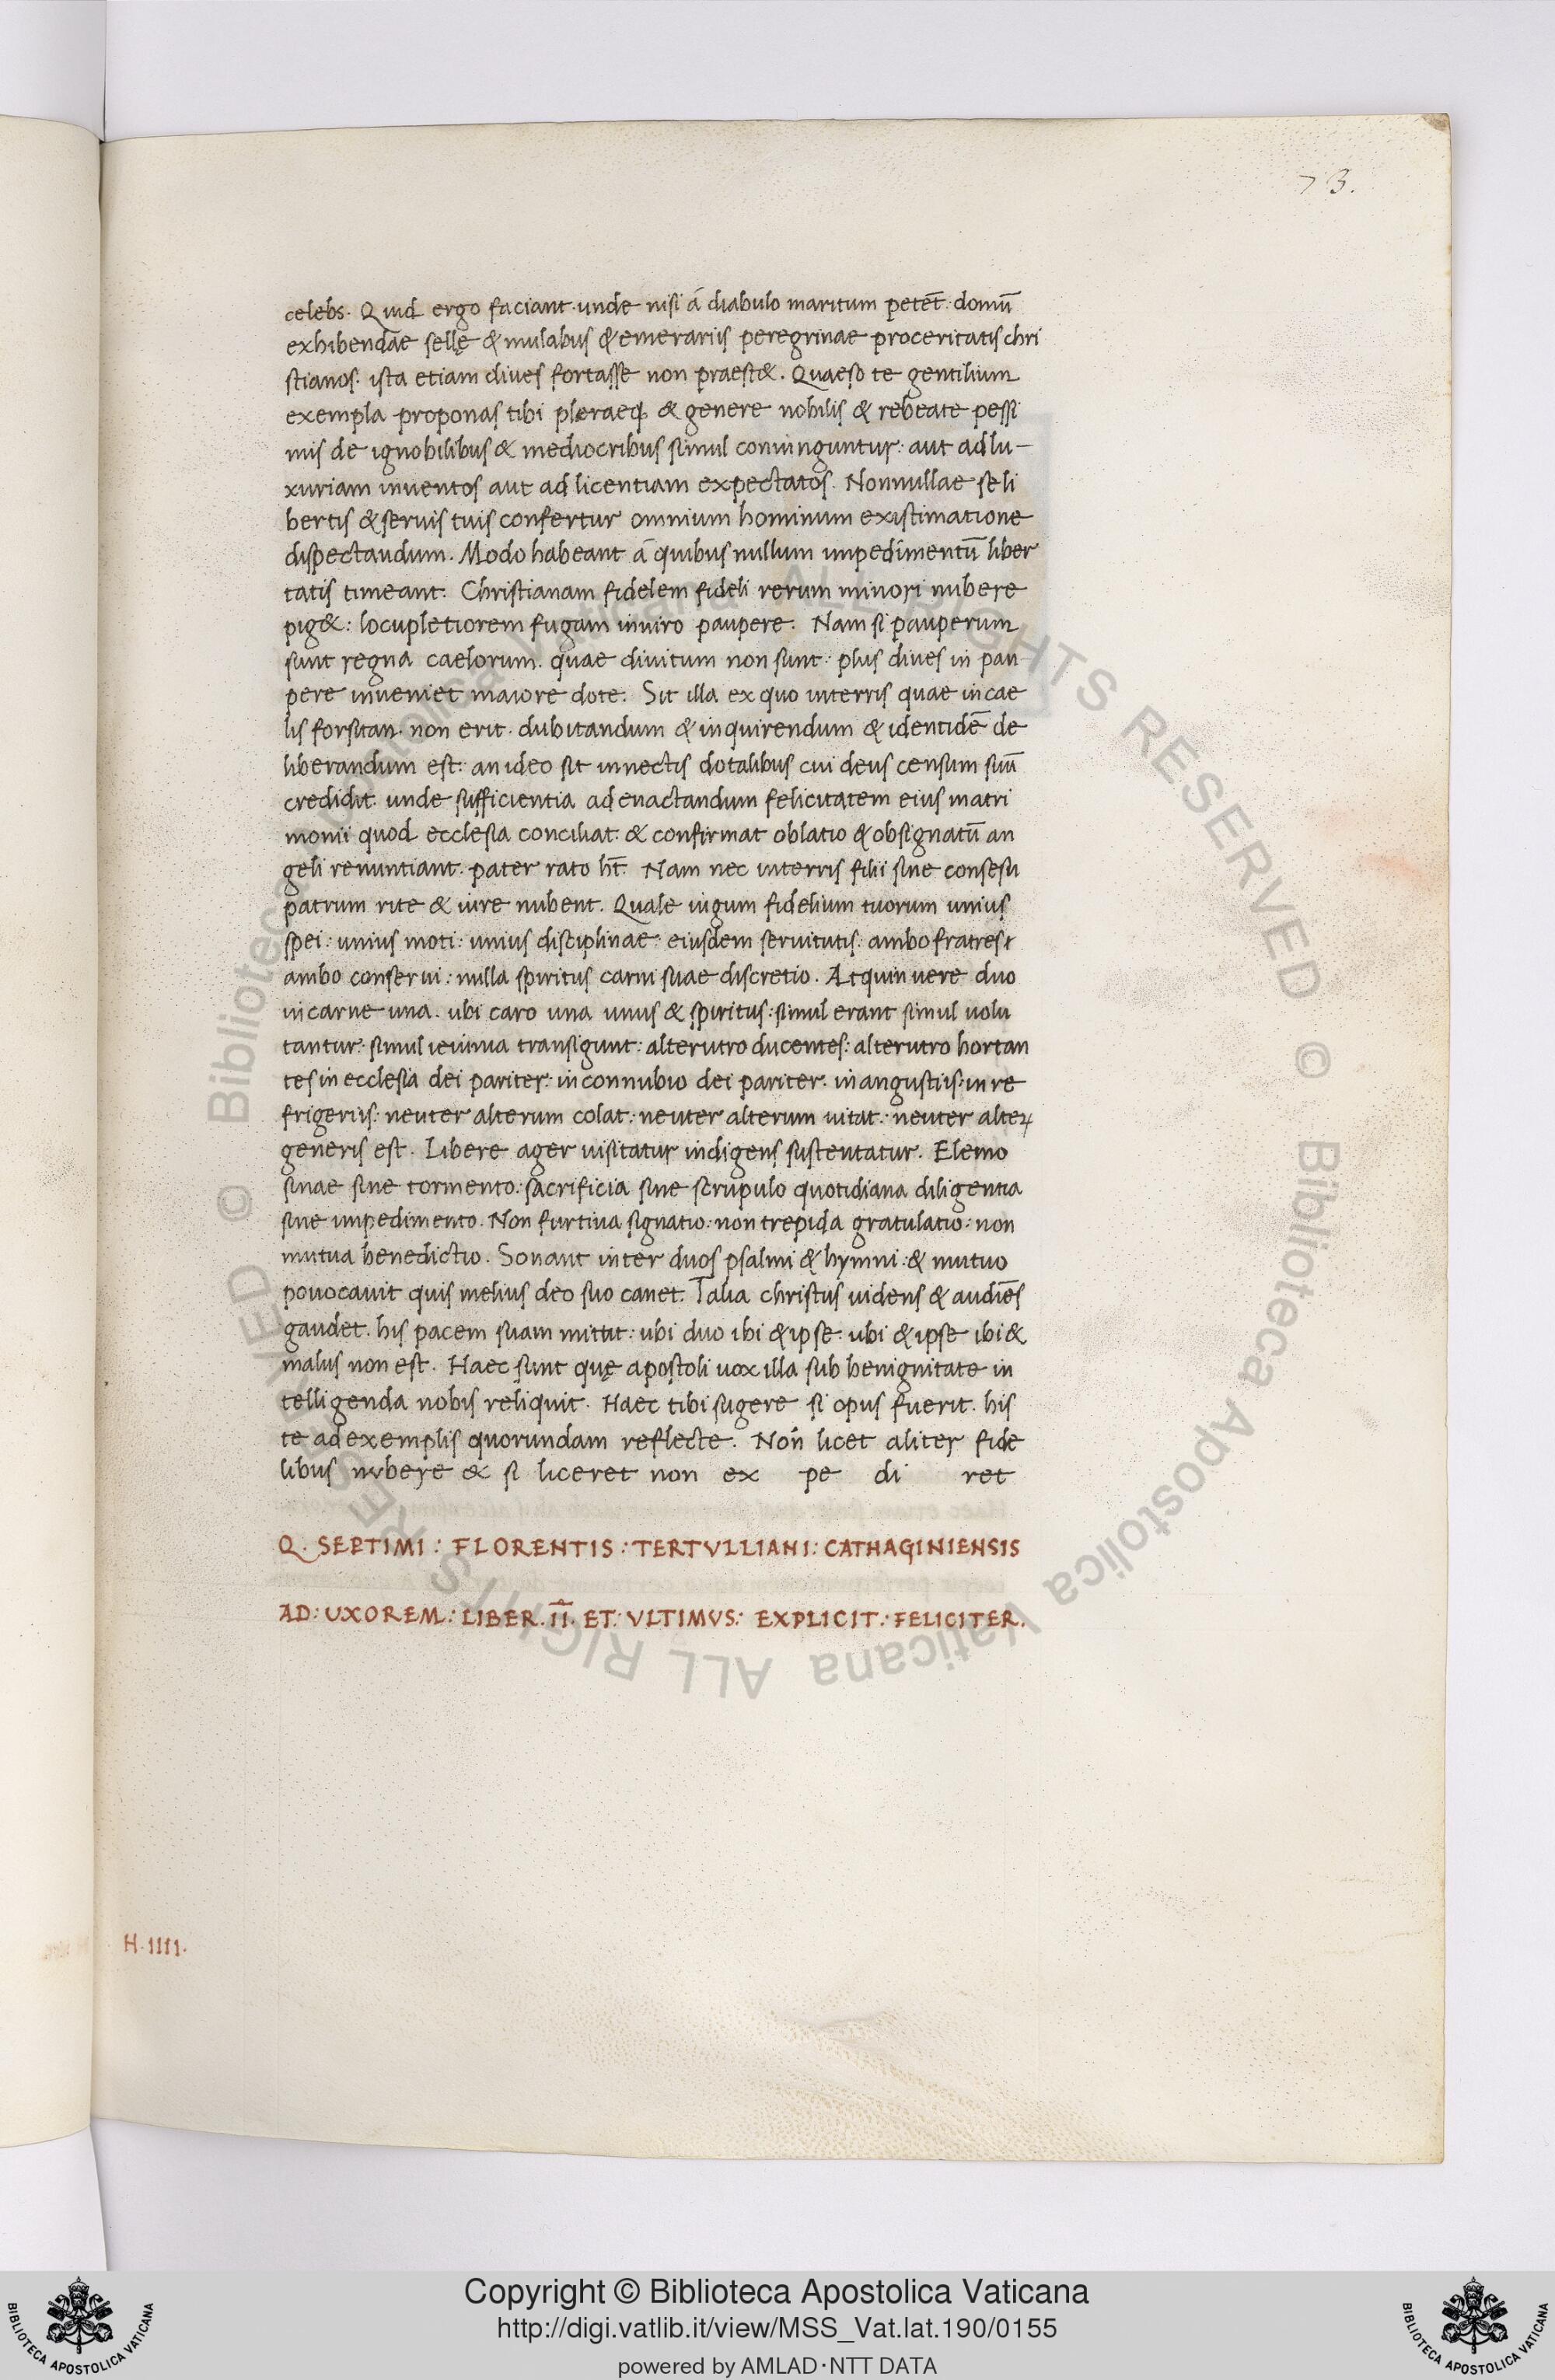 73.
celebs. Quid ergo faciant. unde nisi á diabulo maritum petēt. domū
exhibendae sellę & mulabus & emerariis peregrinae proceritatis chri
stianos. ista etiam diues fortasse non praest&. Quaeso te gentilium
exempla proponas tibi pleraeq; & genere nobilis & rebeate pessi
mis de ignobilibus & mediocribus simul coniunguntur: aut ad lu-
xuriam inuentos aut ad licentiam expectatos. Nonnullae se li
bertis & seruis tuis confertur omnium hominum existimatione
dispectandum. Modo habeant á quibus nullum impedimentū liber
tatis timeant. Christianam fidelem fideli rerum minori nubere
pig&: locupletiorem fugam inuiro paupere. Nam si pauperum
sunt regna caelorum. quae diuitum non sunt: plus diues in pau
pere inueniet maiore dote. Sit illa ex quo interris quae in cae
lis forsitan. non erit. dubitandum & inquirendum & identidē de
liberandum est: an ideo sit innectis dotalibus cui deus censum suū
credidit. unde sufficientia ad enactandum felicitatem eius matri
monii quod ecclesia conciliat. & confirmat oblatio & obsignatū an
geli renuntiant. pater rato ht̄. Nam nec interris filii sine consesu
patrum rite & iure nubent. Quale iugum fidelium tuorum unius
spei: unius moti: unius disciplinae: eiusdem seruitutis: ambo fratres
ambo conserui: nulla spiritus carni suae discretio. Atquin uere duo
in carne una. ubi caro una unus & spiritus: simul erant simul uolu
tantur: simul ieiunia transigunt: alterutro ducentes: alterutro hortan
tes in ecclesia dei pariter: in connubio dei pariter. in angustiis: in re
frigeriis: neuter alterum colat: neuter alterum uitat: neuter alteꝝ
generis est. Libere ager uisitatur indigens sustentatur. Elemo
sinae sine tormento: sacrificia sine scrupulo quotidiana diligentia
sine impedimento. Non furtiua signatio: non trepida gratulatio: non
mutua benedictio. Sonant inter duos psalmi & hymni: & mutuo
pouocauit quis melius deo suo canet. Talia christus uidens & audiēs
gaudet. his pacem suam mittit: ubi duo ibi & ipse: ubi & ipse ibi &
malus non est. Haec sunt quę apostoli uox illa sub benignitate in
telligenda nobis reliquit. Haec tibi sugere si opus fuerit. his
te ad exemplis quorundam reflecte. Non licet aliter fide
libus nubere & si liceret non ex pe di ret
Q. SEPTIMI: FLORENTIS: TERTVLLIANI: CATHAGINIENSIS
AD: UXOREM: LIBER. II. ET: VLTIMVS: EXPLICIT: FELICITER.
H. IIII.
© Biblioteca Apostolica Vaticana ALL RIGHTS RESERVED
© Biblioteca Apostolica Vaticana ALL RIGHTS RESERVED
Copyright © Biblioteca Apostolica Vaticana
http://digi.vatlib.it/view/MSS_Vat.lat.190/0155
powered by AMLAD·NTT DATA
BIBLIOTECA APOSTOLICA VATICANA
BIBLIOTECA APOSTOLICA VATICANA